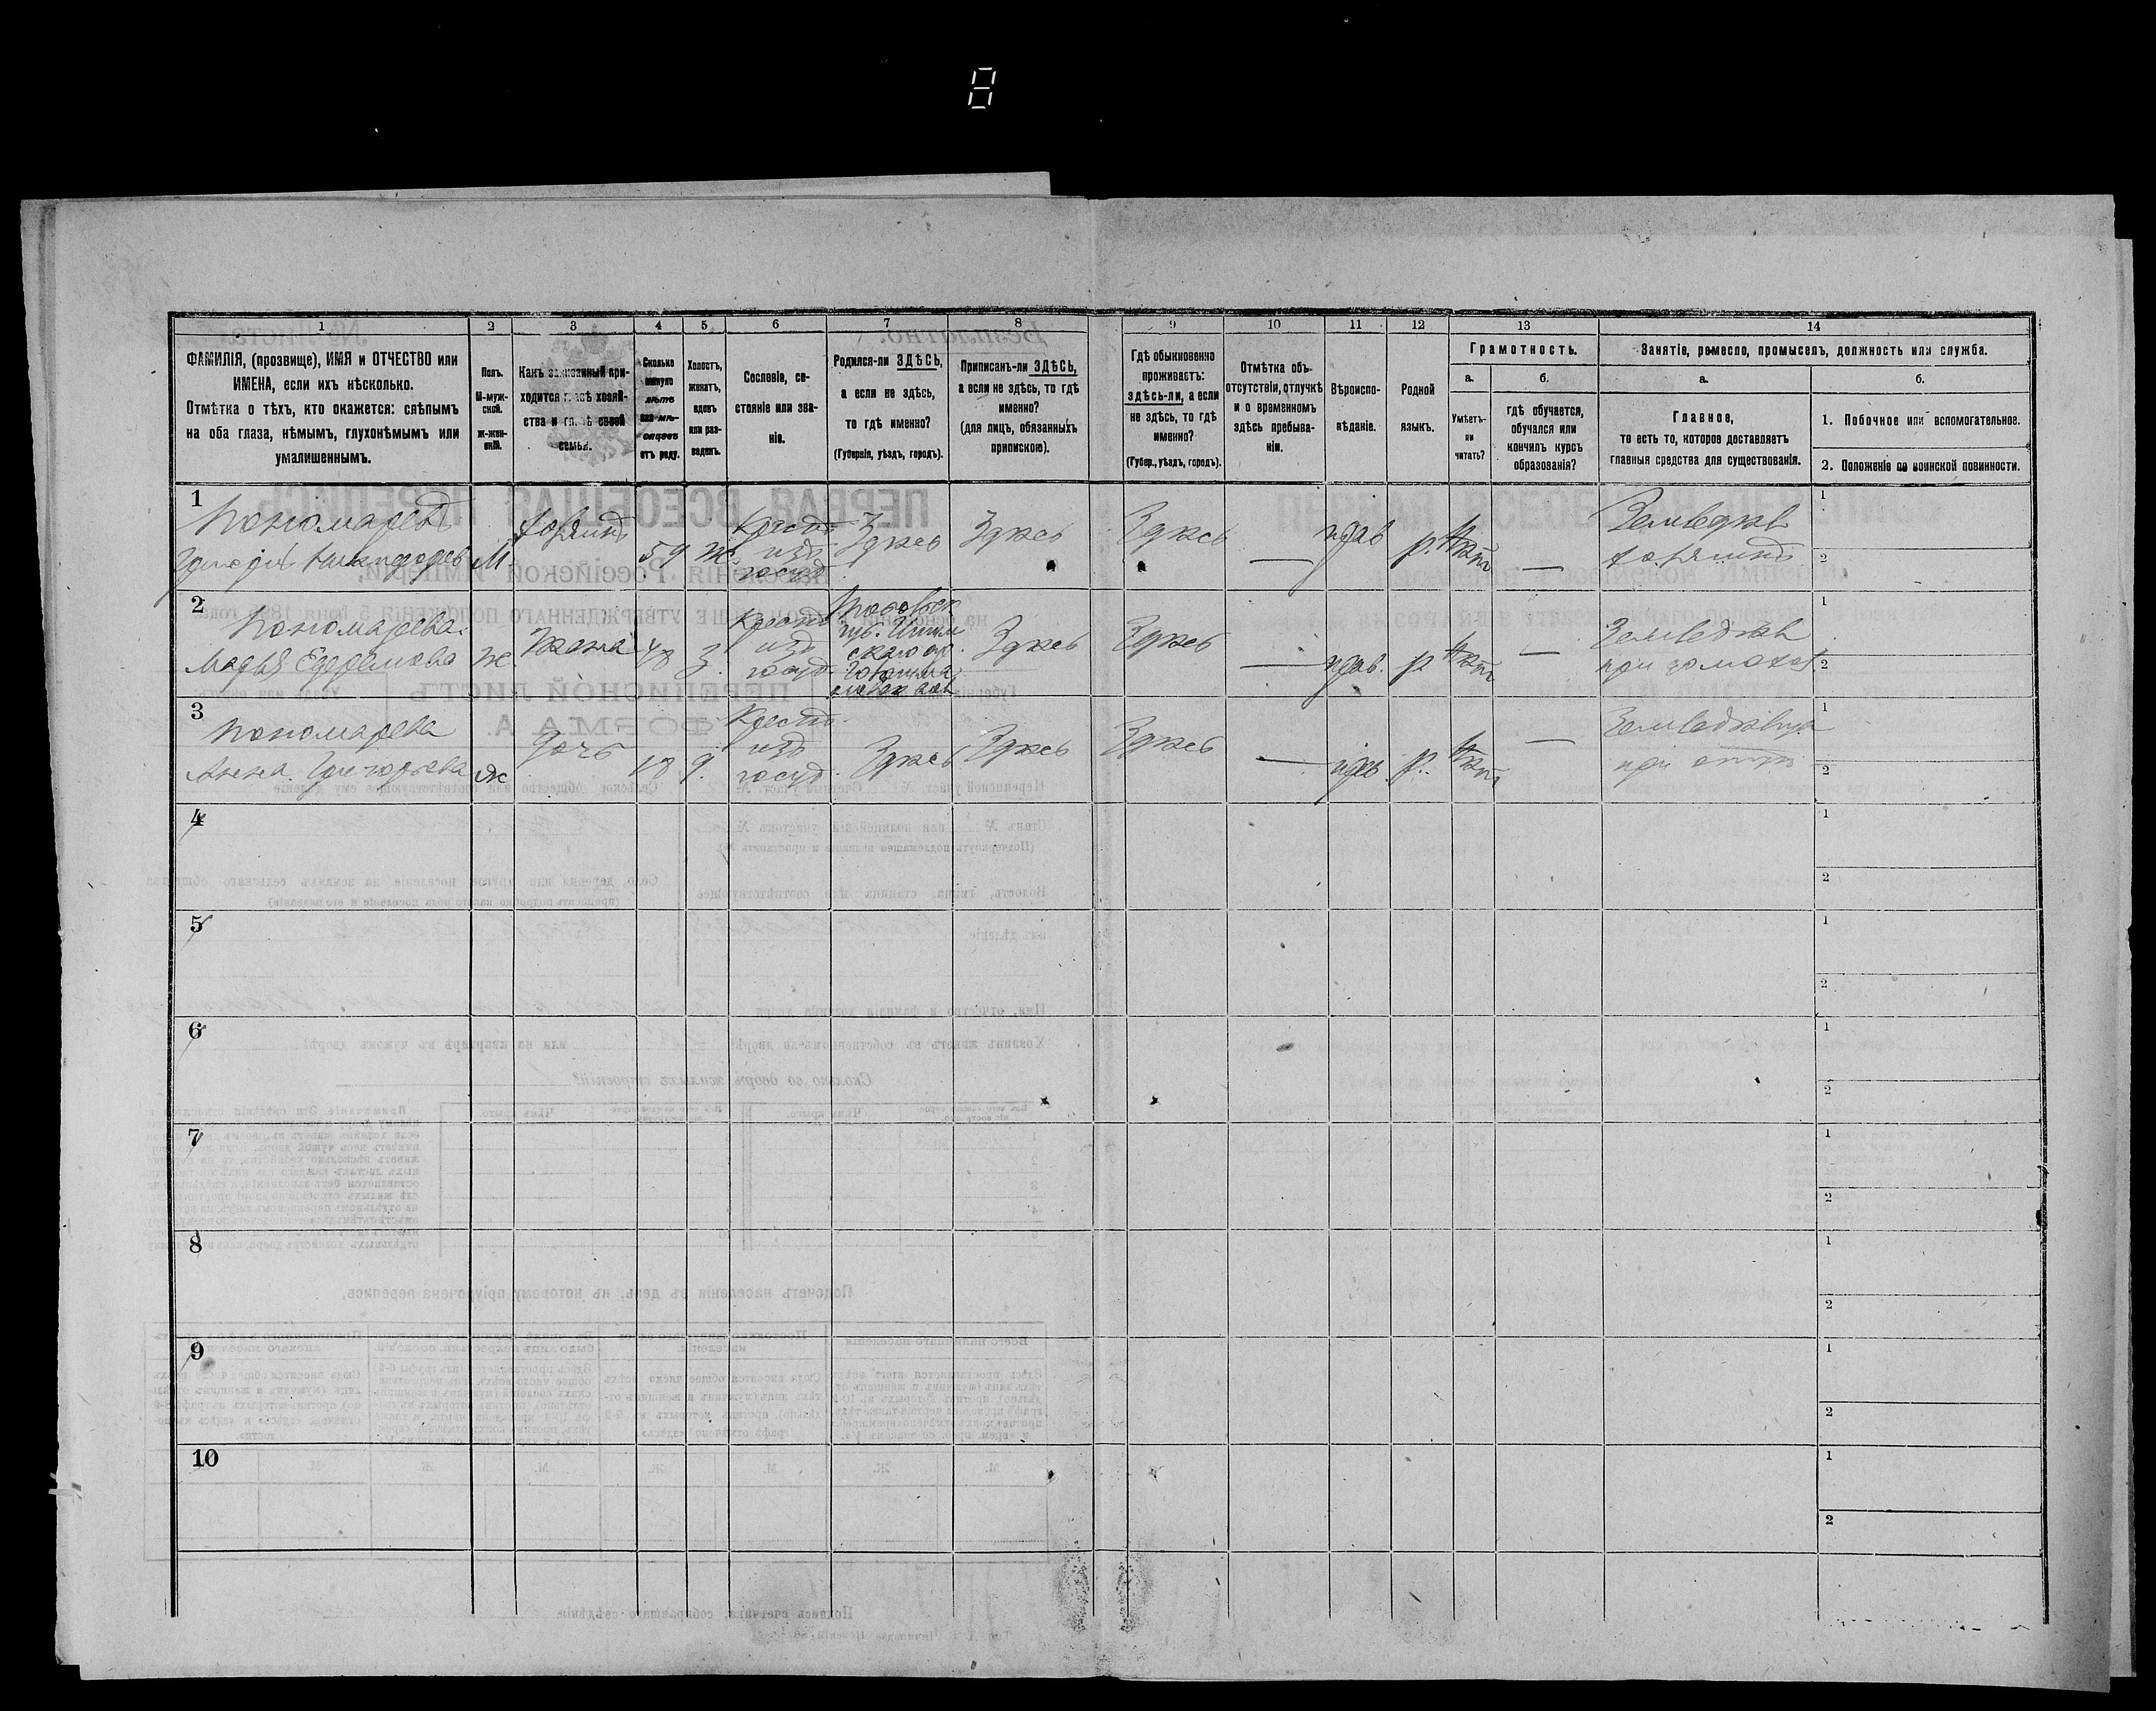 8
1
2
3
4
5
6
7
8
9
10
11
12
13
14
ФАМИЛІЯ, (прозвище), ИМЯ и ОТЧЕСТВО или
ИМЕНА, если ихъ нѣсколько.
Отмѣтка о тѣхъ, кто окажется: слѣпымъ
на оба глаза, нѣмымъ, глухонѣмымъ или
умалишеннымъ.
Полъ.
М-муж-
ской.
Ж-жен-
скій.
Какъ записанный при-
ходится главѣ хозяй-
ства и главѣ своей
семьи.
Сколько
минуло
лѣтъ
или мѣ-
сяцевъ
отъ роду.
Холостъ,
женатъ,
вдовъ
или раз-
веденъ.
Сословіе, со-
стояніе или зва-
ніе.
Родился-ли ЗДѢСЬ,
а если не здѣсь,
то гдѣ именно?
(Губернія, уѣздъ, городъ).
Приписанъ-ли ЗДѢСЬ,
а если не здѣсь, то гдѣ
именно?
(для лицъ, обязанныхъ
припискою).
Гдѣ обыкновенно
проживаетъ:
здѣсь-ли, а если
не здѣсь, то гдѣ
именно?
(Губер., уѣздъ, городъ).
Отмѣтка объ
отсутствіи, отлучкѣ
и о временномъ
здѣсь пребыва-
ніи.
Вѣроиспо-
вѣданіе.
Родной
языкъ.
Грамотность.
а.
Умѣетъ-
ли
читать?
б.
гдѣ обучается,
обучался или
кончилъ курсъ
образованія?
Занятіе, ремесло, промыселъ, должность или служба.
а.
Главное,
то есть то, которое доставляетъ
главныя средства для существованія.
б.
1. Побочное или вспомогательное.
2. Положеніе по воинской повинности.
1
Пономаревъ
Григорій Никифоровъ
М.
хозяинъ
59
Ж.
Крестъ.
изъ
госуд.
Здѣсь
Здѣсь
Здѣсь
—
прав
р.
нѣтъ
—
Земледѣл
хозяинъ
1
2
2
Пономарева
Марья Ефремова
Ж.
Жена
48
З.
Крестъ
изъ
госуд.
Тобольск
губ. Ишим
скаго ок.
Здѣсь
Здѣсь
—
прав.
р.
нѣтъ
—
Земледѣл
при домохоз
1
2
3
Пономарева
Анна Григорьева
Ж
Дочь
18
д.
Крестъ.
изъ
госуд.
Здѣсь
Здѣсь
Здѣсь
—
прав.
р.
нѣтъ
—
Земледѣлица
при отцѣ
1
2
4
1
2
5
1
2
6
1
2
7
1
2
8
1
2
9
1
2
10
1
2